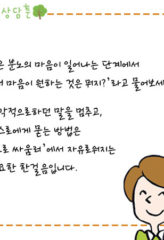 상담톤
은 분노의 마음이 일어나는 단계에서
내 마음이 원하는 것은 뭐지?'라고 물어보세
각적으로하던 말을 멈추고,
스로에게 묻는 방법은
로 싸울려'에서 자유로워지는
요한 한걸음입니다.